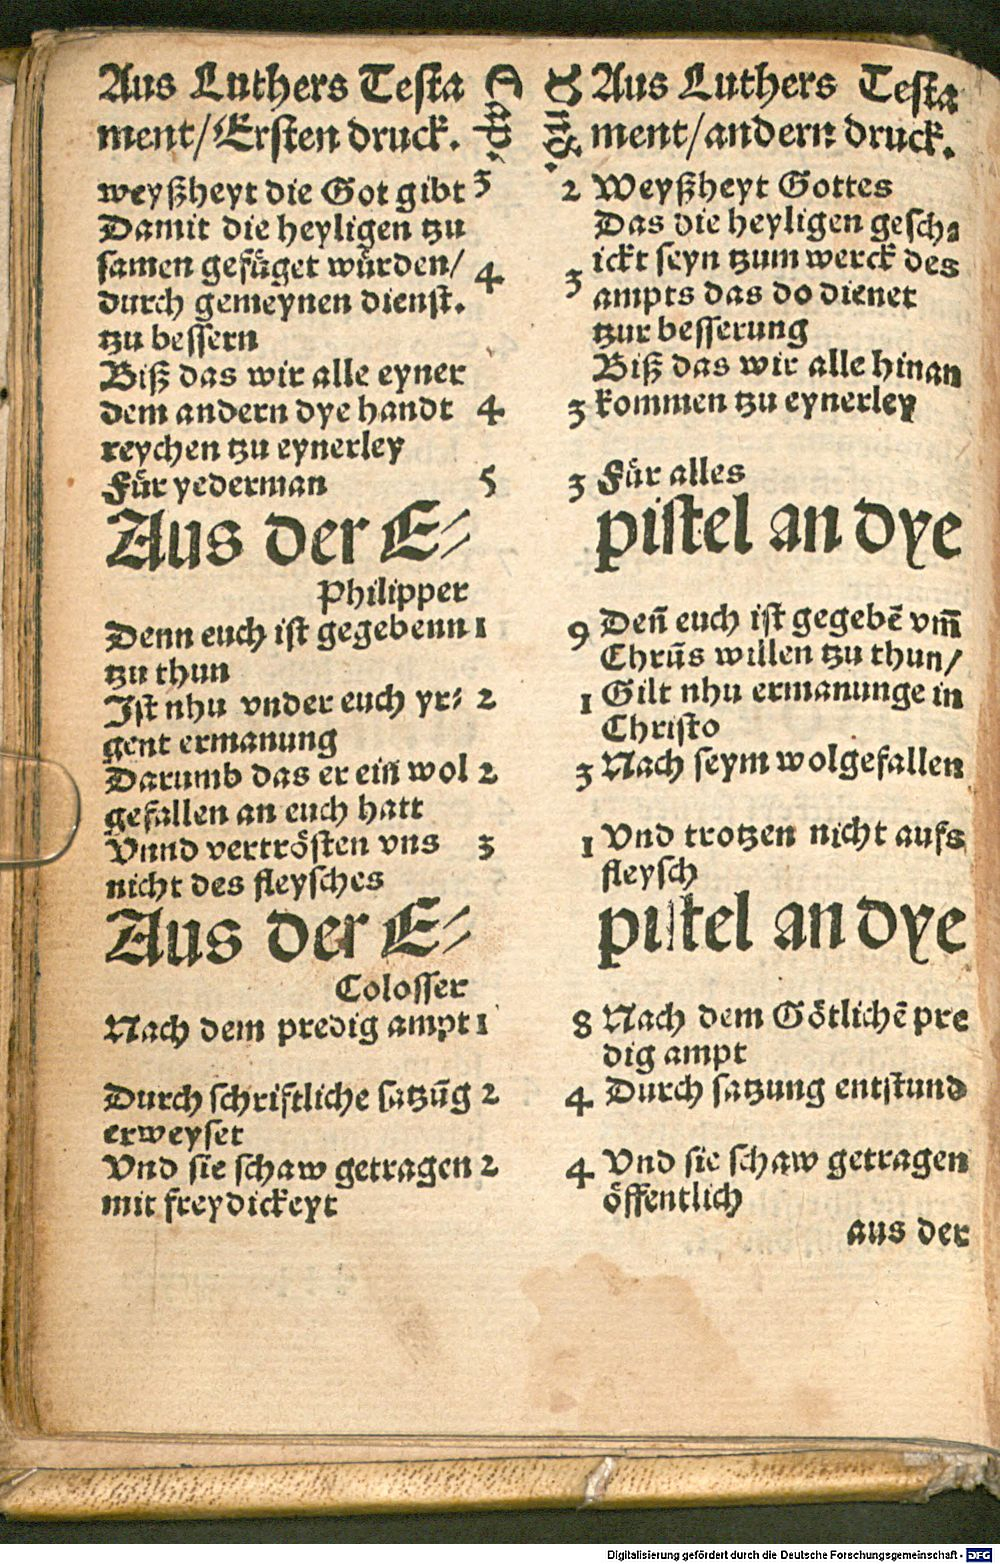 Aus Luthers Testa
ment/Ersten druck.
Cap.
weyßheyt die Got gibt 3
Damit die heyligen tzu
samen gefůget würden/ 4
durch gemeynen dienst.
tzu bessern
Biß das wir alle eyner
dem andern dye handt 4
reychen tzu eynerley
Für yederman 5
Aus der E-
Philipper
Denn euch ist gegebenn 1
tzu thun
Ist nhu vnder euch yr- 2
gent ermanung
Darumb das er ein wol 2
gefallen an euch hatt
Vnnd vertrösten vns 3
nicht des fleysches
Aus der E-
Colosser
Nach dem predig ampt 1
Durch schriftliche satzūg 2
erweyset
Vnd sie schaw getragen 2
mit freydickeyt
Aus Luthers Testa
ment/andern druck.
2 Weyßheyt Gottes
Das die heyligen gesch-
ickt seyn tzum werck des
3 ampts das do dienet
tzur besserung
Biß das wir alle hinan
3 kommen tzu eynerley
3 Für alles
pistel an dye
9 Deñ euch ist gegebē vm̄
Chrūs willen tzu thun/
1 Gilt nhu ermanunge in
Christo
3 Nach seym wolgefallen
1 Vnd trotzen nicht aufs
fleysch
pistel an dye
8 Nach dem Götlichē pre
dig ampt
4 Durch satzung entstund
4 Vnd sie schaw getragen
öffentlich
aus der
Digitalisierung gefördert durch die Deutsche Forschungsgemeinschaft - DFG